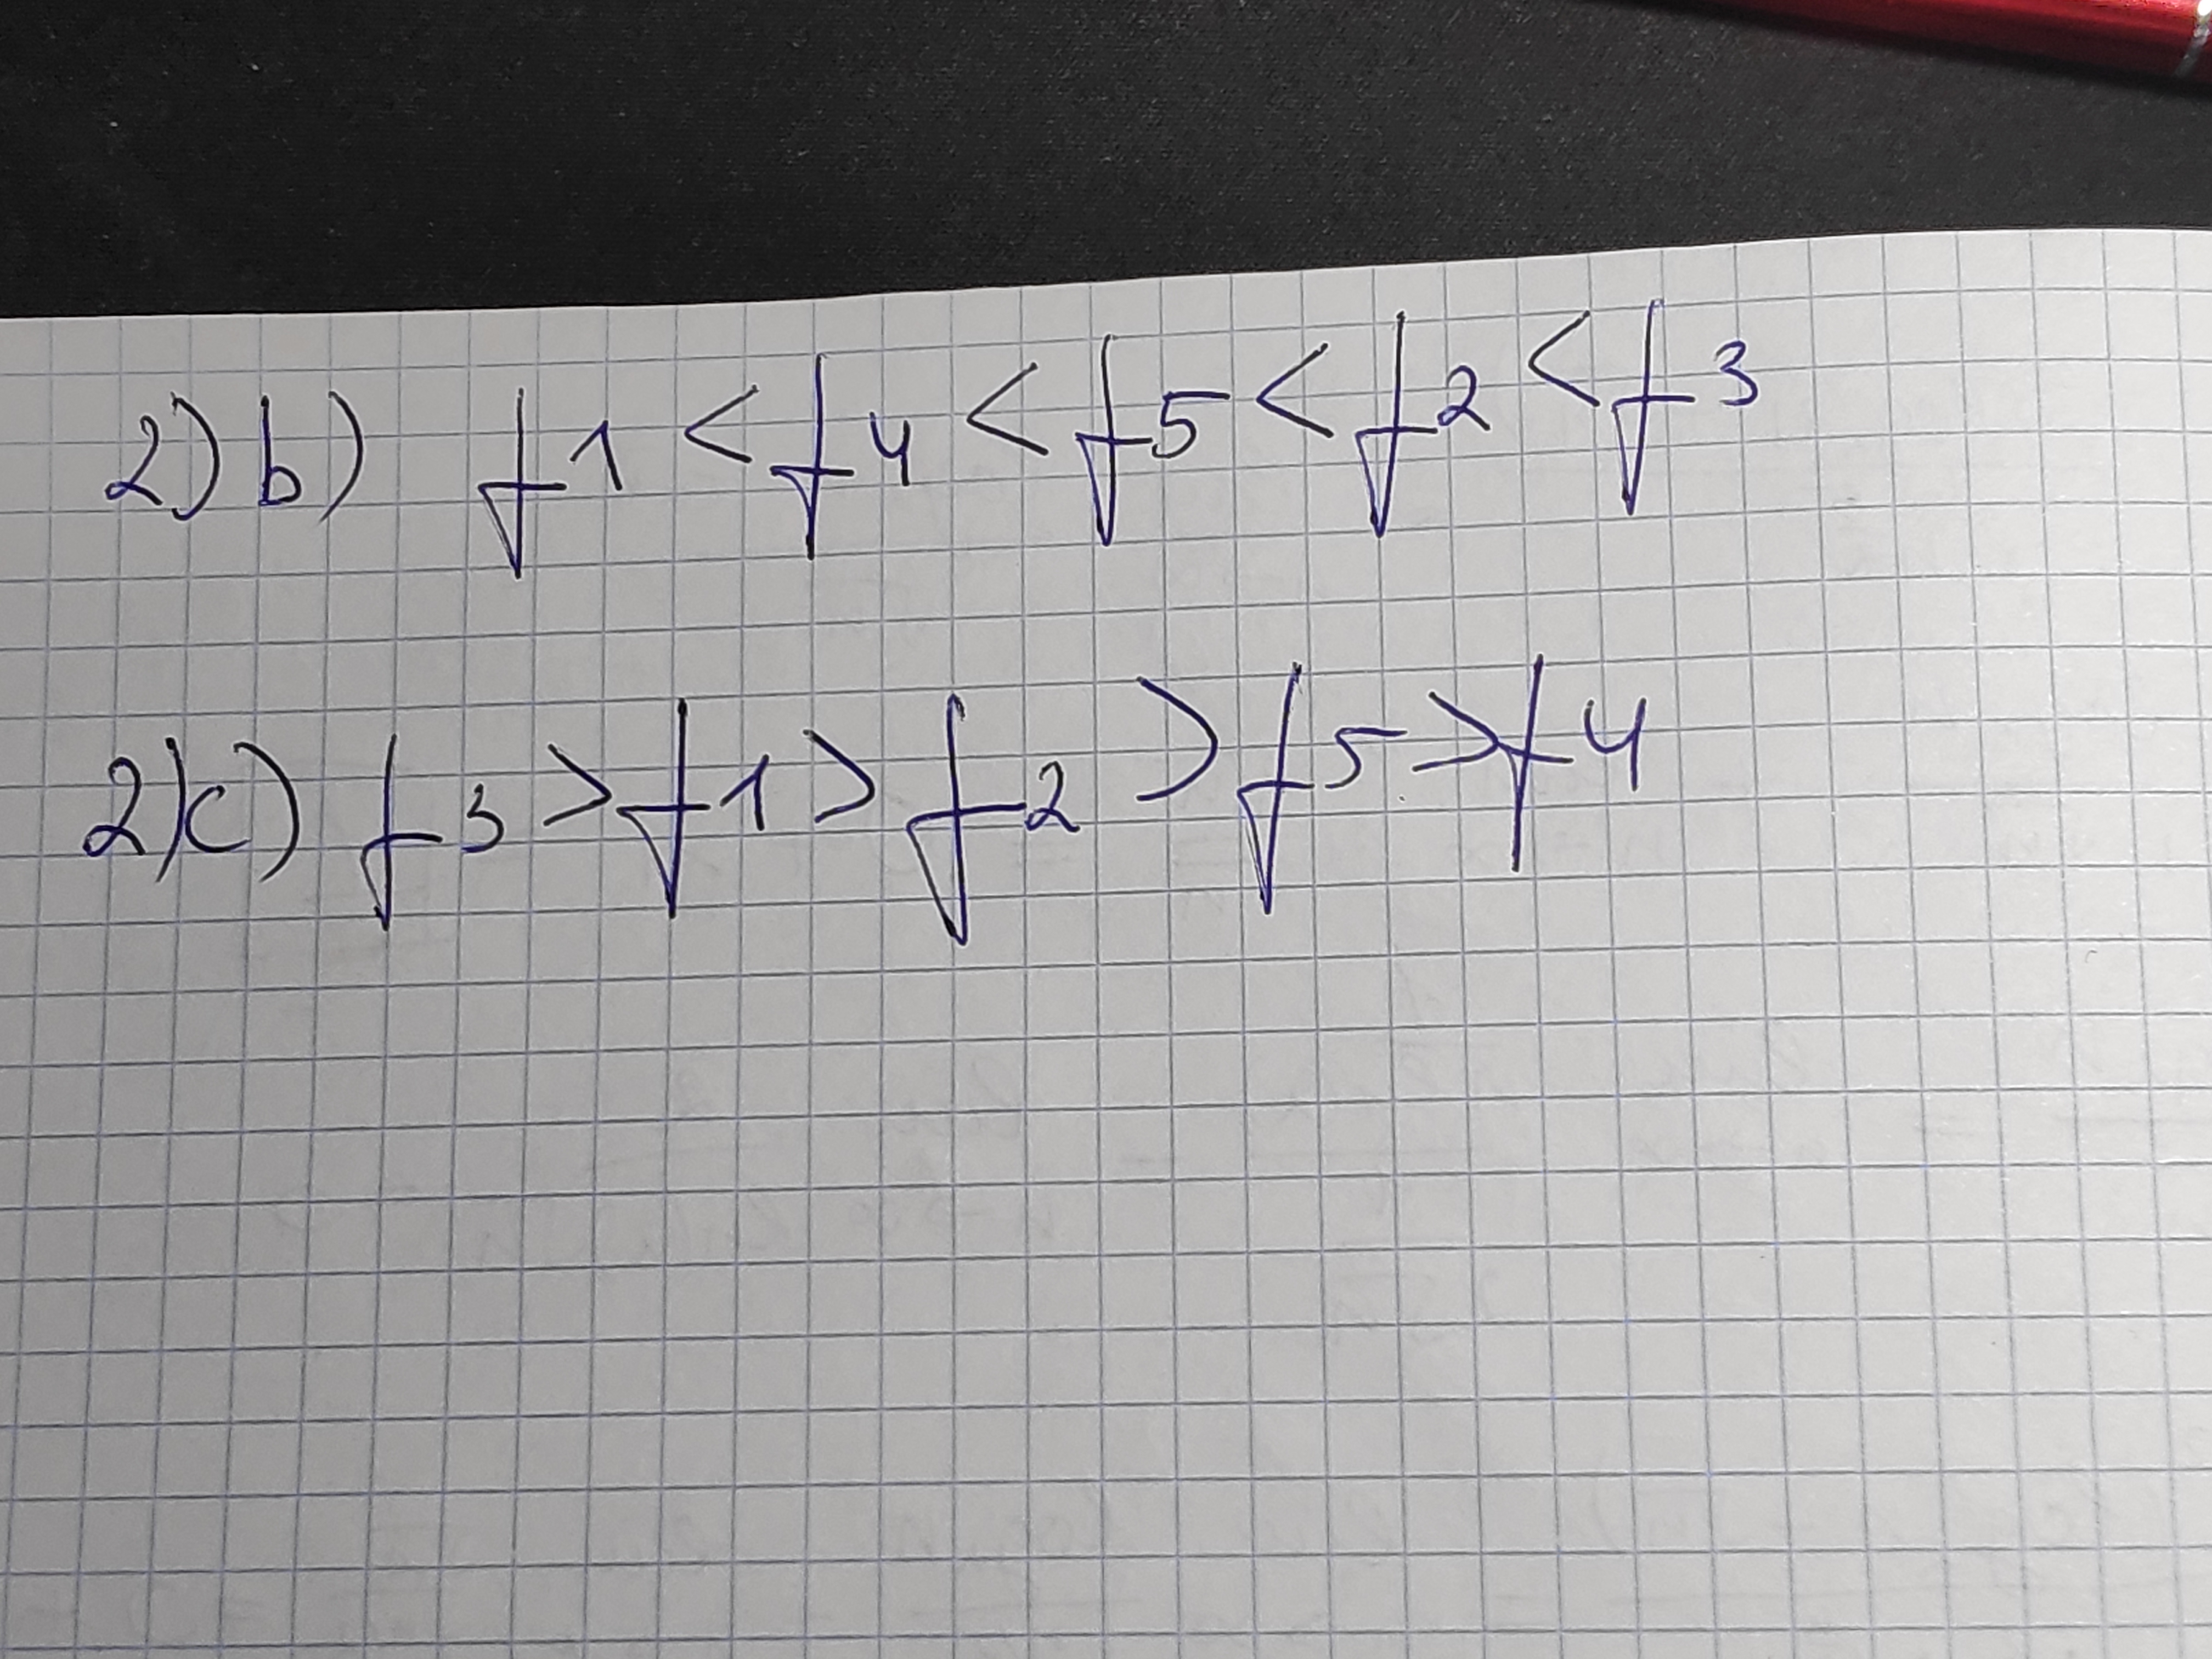 2) b) f1 < f4 < f5 < f2 < f3
2) c) f3 > f1 > f2 > f5 > f4